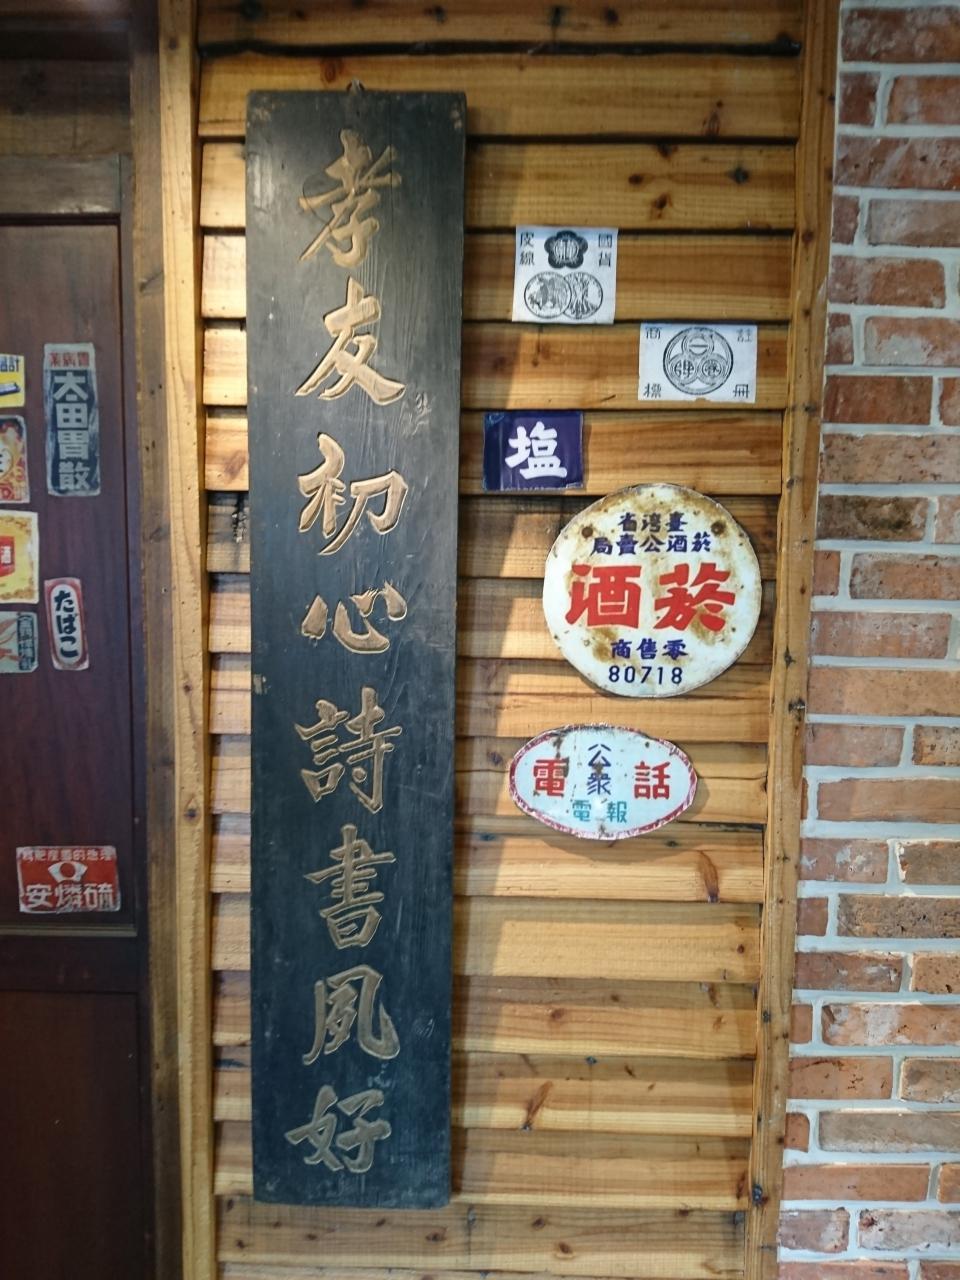 孝友初心詩書夙好
國貨
皮線
註冊
商標
塩
臺灣省
菸酒公賣局
菸酒
零售商
80718
公眾
電話
電報
太田胃散
たばこ
酒
計
硫燐安